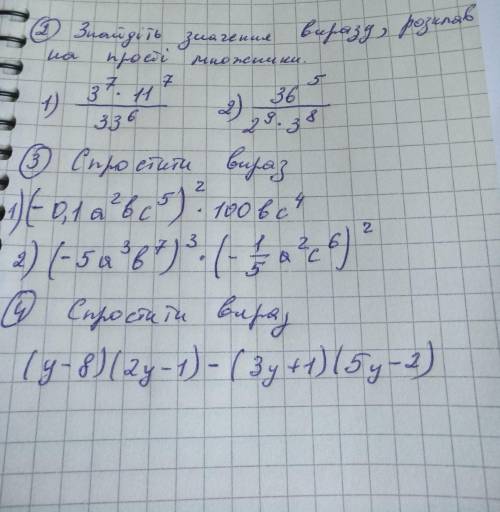 ② Знайдіть значення виразу, розклав
на прості множники.
1) (3⁷·11⁷)/33⁶ 2) 36⁵/(2⁹·3⁸)
③ Спростити вираз
1)(-0,1a²bc⁵)²·100bc⁴
2) (-5a³b⁷)³·(-1/5a²c⁶)²
④ Спростити вираз
(y-8)(2y-1)-(3y+1)(5y-2)